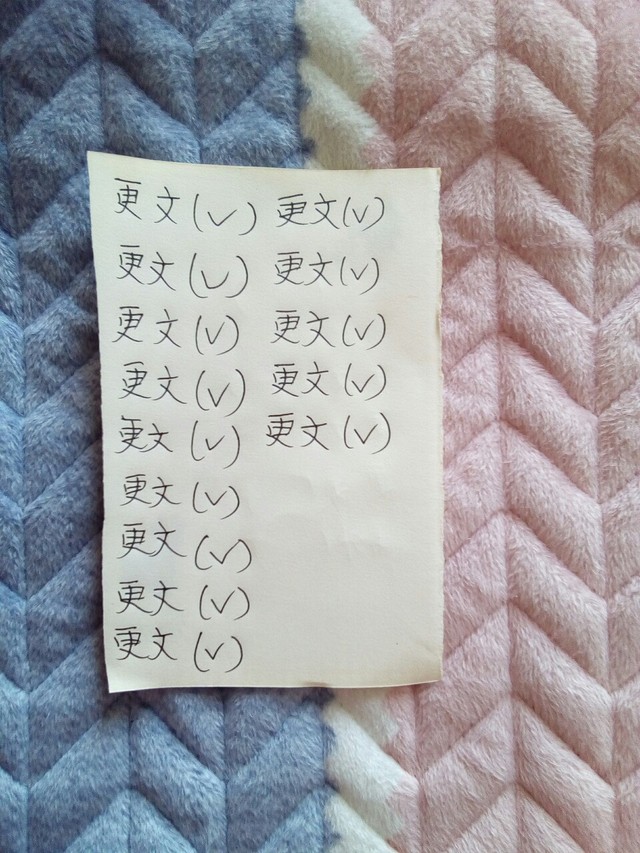 更文(√) 更文(√)
更文(√) 更文(√)
更文(√) 更文(√)
更文(√) 更文(√)
更文(√) 更文(√)
更文(√)
更文(√)
更文(√)
更文(√)